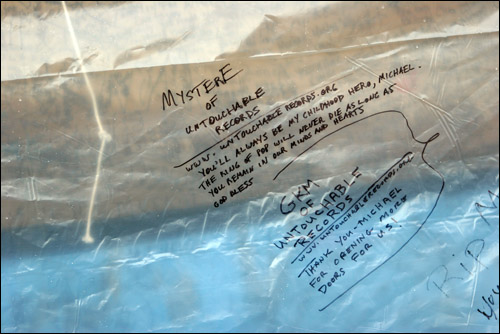 MYSTERE
OF
UNTOUCHABLE
RECORDS
WWW.UNTOUCHABLERECORDS.ORG
YOU'LL ALWAYS BE MY CHILDHOOD HERO, MICHAEL.
THE KING OF POP WILL NEVER DIE AS LONG AS
YOU REMAIN IN OUR MINDS AND HEARTS
GOD BLESS
GKM
OF
UNTOUCHABLE
RECORDS
WWW.UNTOUCHABLERECORDS.ORG
THANK YOU-MICHAEL
FOR OPENING MORE
DOORS FOR US!
RIP M